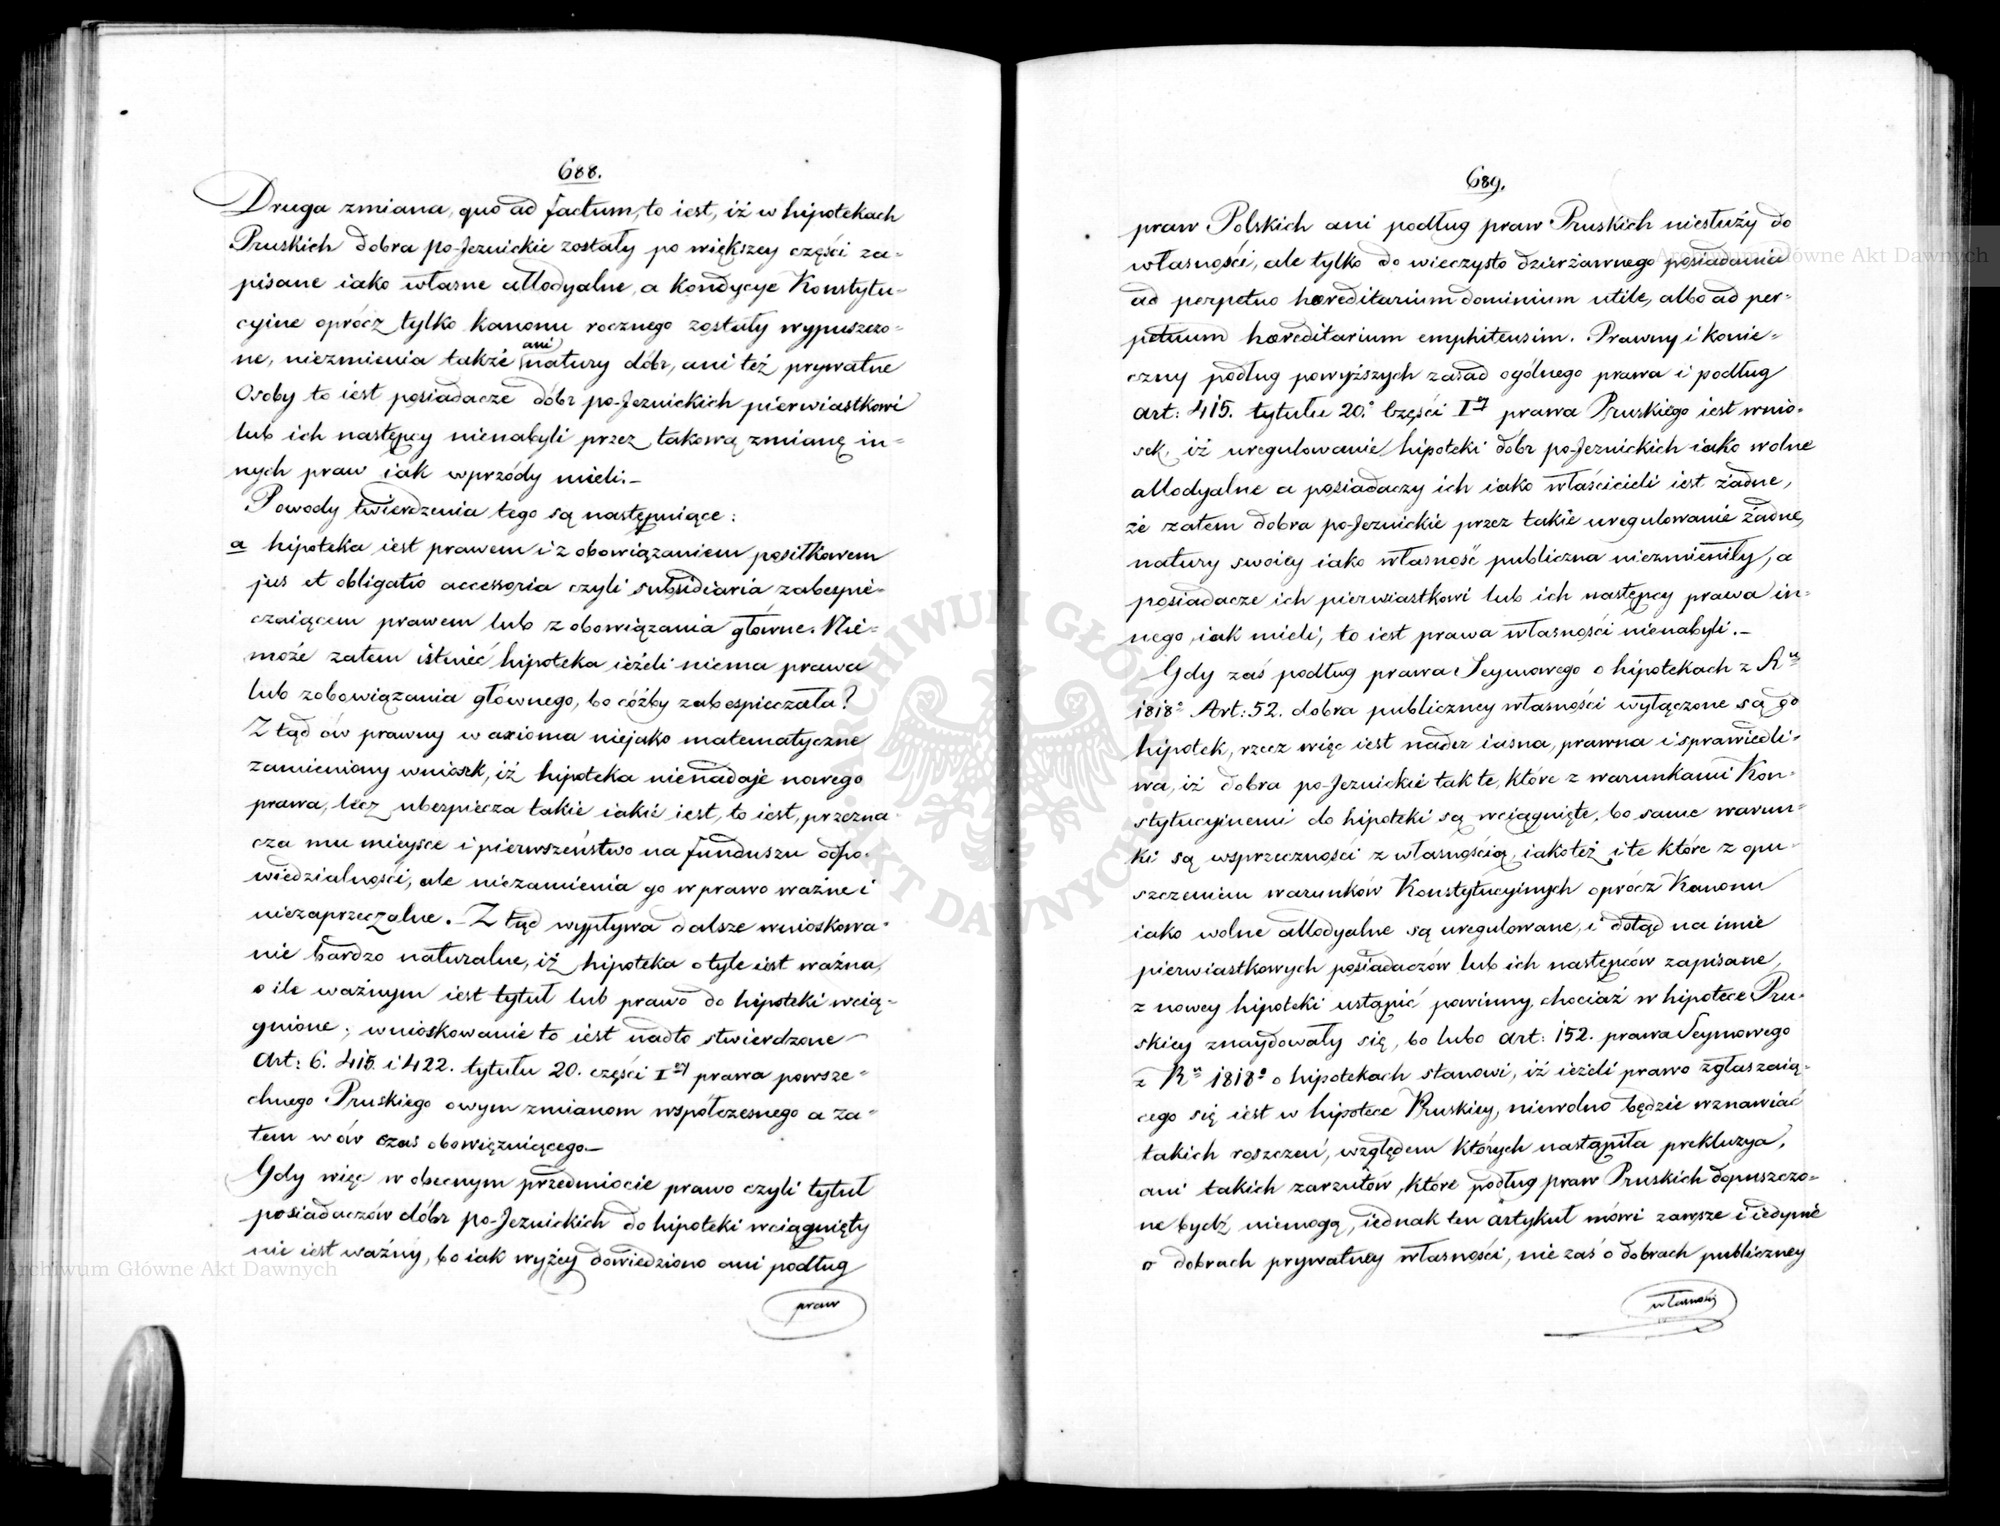 688.
Druga zmiana, quo ad factum, to iest, iż w hipotekach
Pruskich dobra po-Jezuickie zostały po większey części za-
pisane iako własne allodyalne, a kondycye Konstytu-
cyine oprócz tylko kanonu rocznego zostały wypuszczo-
ne, niezmienia także ani natury dóbr, ani też prywatne
Osoby to iest posiadacze dóbr po-Jezuickich pierwiastkowi
lub ich następcy nienabyli przez takową zmianę in-
nych praw iak wprzódy mieli.-
Powody twierdzenia tego są następuiące:
a hipoteka iest prawem i zobowiązaniem posiłkowem
jus et obligatio accessoria czyli subsidiaria zabespie-
czaiącem prawem lub zobowiązania główne. Nie-
może zatem istnieć hipoteka ieżeli niema prawa
lub zobowiązania głównego, bo cóżby zabespieczała?
Ztąd ów prawny w axioma niejako matematyczne
zamieniony wniosek, iż hipoteka nienadaje nowego
prawa, lecz ubezpiecza takie iakie iest, to iest, przezna-
cza mu mieysce i pierwszeństwo na funduszu odpo-
wiedzialności, ale niezamienia go w prawo ważne i
niezaprzeczalne. - Ztąd wypływa dalsze wnioskowa-
nie bardzo naturalne, iż hipoteka o tyle iest ważna,
o ile ważnym iest tytuł lub prawo do hipoteki wcią-
gnione; wnioskowanie to iest nadto stwierdzone
Art: 6. 415. i 422. tytułu 20. części Iey prawa powsze-
chnego Pruskiego owym zmianom współczesnego a za-
tem wów czas obowięzuiącego.-
Gdy więc w obecnym przedmiocie prawo czyli tytuł
posiadaczów dóbr po-Jezuickich do hipoteki wciągnięty
nie iest ważny, bo iak wyżey dowiedziono ani podług
praw
689.
praw Polskich ani podług praw Pruskich niesłuży do
własności, ale tylko do wieczysto dzierżawnego posiadania
ad perpetuo hæreditarium dominium utile, albo ad per-
petuum hæreditarium emphiteusim. Prawny i konie-
czny podług powyższych zasad ogólnego prawa i podług
art: 415. tytułu 20.o Części Iey prawa Pruskiego iest wnio-
sek, iż uregulowanie hipoteki dóbr po-Jezuickich iako wolne
allodyalne a posiadaczy ich iako właścicieli iest żadne,
że zatem dobra po-Jezuickie przez takie uregulowanie żadne,
natury swoiey iako własność publiczna niezmieniły, a
posiadacze ich pierwiastkowi lub ich następcy prawa in-
nego, iak mieli, to iest prawa własności nienabyli.-
Gdy zaś podług prawa Seymowego o hipotekach z Ru
1818o Art: 52. dobra publiczney własności wyłączone są do
hipotek, rzecz więc iest nader iasna, prawna i sprawiedli-
wa, iż dobra po-Jezuickie tak te, które z warunkami Kon-
stytucyinemi do hipoteki są wciągnięte, bo same warun-
ki są wsprzeczności z własnością, iakoteż i te które z opu-
szczeniem warunków Konstytucyinych oprócz Kanonu
iako wolne allodyalne są uregulowane, i dotąd na imie
pierwiastkowych posiadaczów lub ich następców zapisane,
z nowey hipoteki ustąpić powinny, chociaż w hipotece Pru-
skiey znaydowały się, bo lubo art: 152. prawa Seymowego
z Ru 1818o o hipotekach stanowi, iż ieżeli prawo zgłaszaią-
cego się iest w hipotece Pruskiey, niewolno będzie wznawiać
takich roszczeń, względem których nastąpiła prekluzya,
ani takich zarzutów, które podług praw Pruskich dopuszczo-
ne bydź niemogą, iednak ten artykuł mówi zawsze i iedynie
o dobrach prywatney własności, nie zaś o dobrach publiczney
własności
Archiwum Główne Akt Dawnych
Archiwum Główne Akt Dawnych
ARCHIWUM GŁÓWNE AKT DAWNYCH